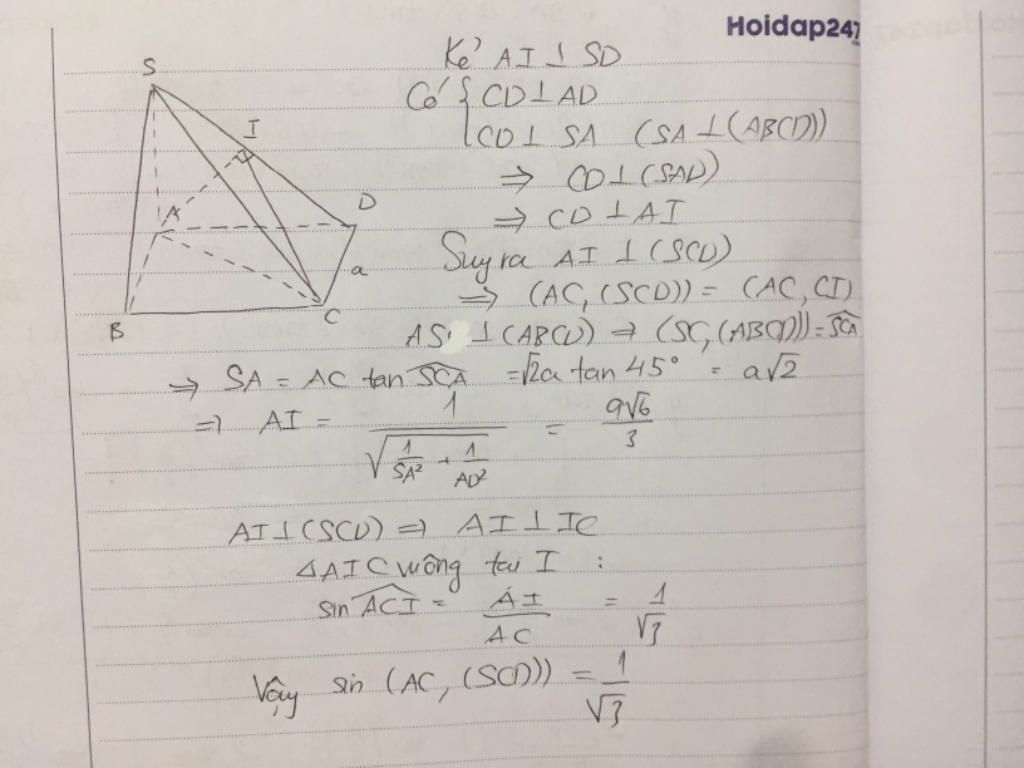 Hoidap247
Kẻ AI ⊥ SD
Có { CD ⊥ AD
CD ⊥ SA (SA ⊥ (ABCD))
⇒ CD ⊥ (SAD)
⇒ CD ⊥ AI
Suy ra AI ⊥ (SCD)
⇒ (AC, (SCD)) = (AC, CI)
AS ⊥ (ABCD) ⇒ (SC, (ABCD)) = SCA
⇒ SA = AC tan SCA = √2a tan 45° = a√2
⇒ AI = 1 / √(1/SA² + 1/AD²) = a√6 / 3
AI ⊥ (SCD) ⇒ AI ⊥ IC
△AIC vuông tại I :
sin ACI = AI / AC = 1 / √3
Vậy sin (AC, (SCD)) = 1 / √3
S
I
A
D
a
B
C